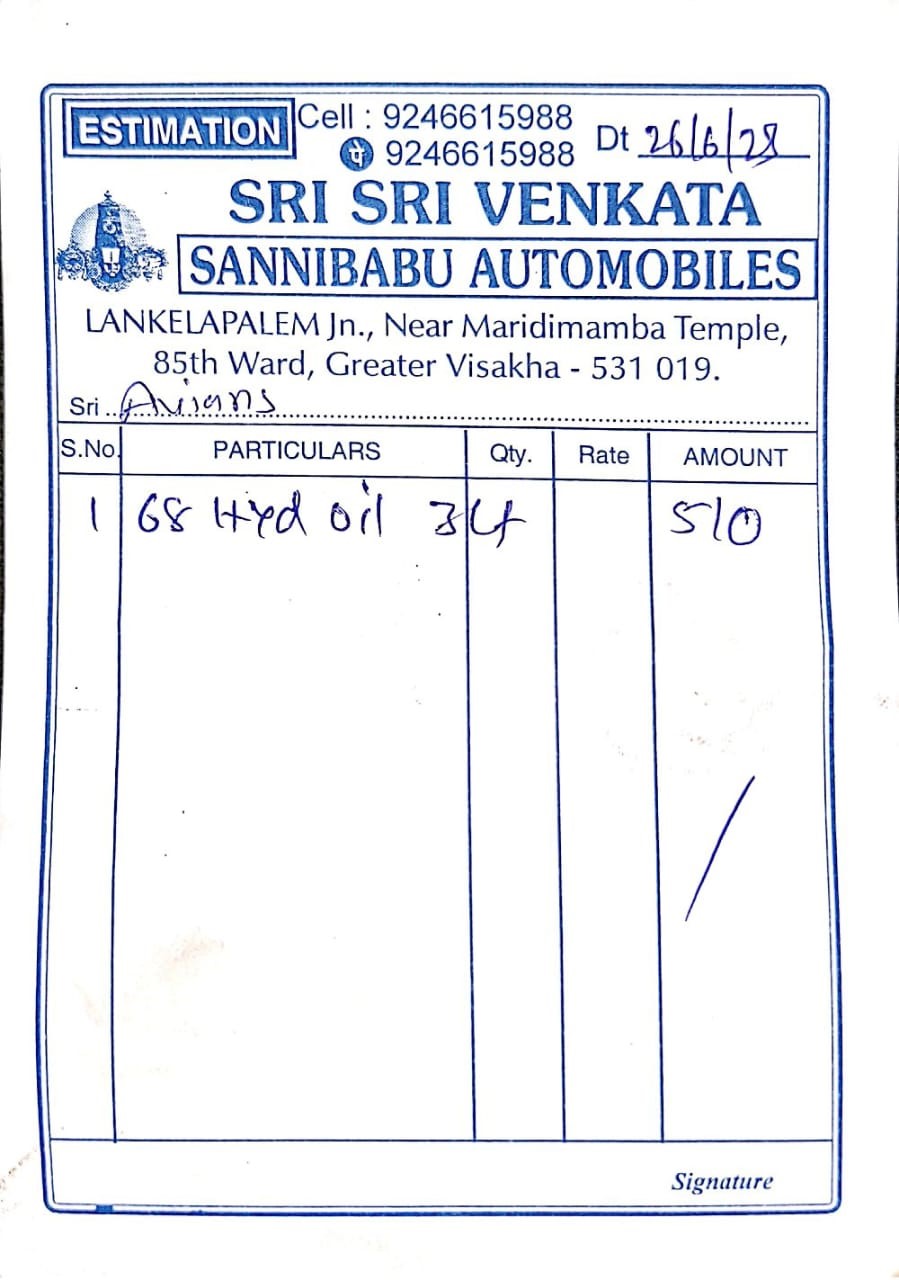 ESTIMATION
Cell : 9246615988
पे 9246615988
Dt 26/6/28
SRI SRI VENKATA
SANNIBABU AUTOMOBILES
LANKELAPALEM Jn., Near Maridimamba Temple,
85th Ward, Greater Visakha - 531 019.
Sri Avians
S.No. PARTICULARS Qty. Rate AMOUNT
1 68 Hyd oil 510
Signature